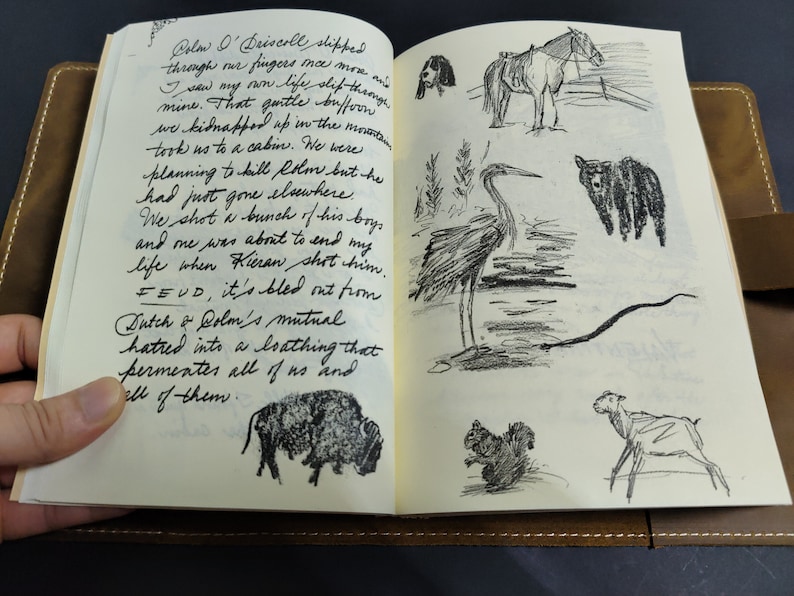 Colm O'Driscoll slipped
through our fingers once more and
I saw my own life slip through
mine. That gentle buffoon
we kidnapped up in the mountains
took us to a cabin. We were
planning to kill Colm but he
had just gone elsewhere.
We shot a bunch of his boys
and one was about to end my
life when Kieran shot him.
FEUD, it's bled out from
Dutch & Colm's mutual
hatred into a loathing that
permeates all of us and
all of them.